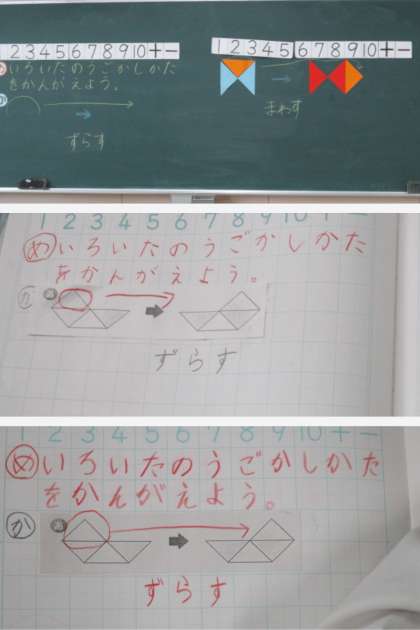 1 2 3 4 5 6 7 8 9 10 + −
1 2 3 4 5 6 7 8 9 10 + −
め いろいたのうごかしかた
をかんがえよう。
か
ずらす
まわす
1 2 3 4 5 6 7 8 9 10 + −
め いろいたのうごかしかた
をかんがえよう。
か
ずらす
2 3 4 5 6 7 8 9 10 + −
め いろいたのうごかしかた
をかんがえよう。
か
ずらす